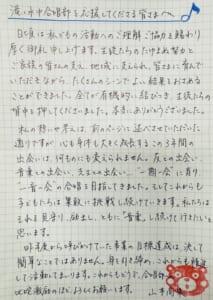 渡小中合唱部を応援してくださる皆さまへ
日頃は私どもの活動へのご理解ご協力を賜わり
厚く御礼申し上げます。生徒たちのたゆまぬ努力と
ご家族の皆さんの支え、地域に支えられ、皆さまに育んで
いただきながら、たくさんのシーンでよい結果をおさめる
ことができました。全てが有機的に結びつき、生徒たちの
背中を押してくださいました。本当にありがとうございました。
私の想いや考えは、前のページに述べさせていただいた
通りですが、心も身体も大きく成長するこの3年間の
出会いは、何ものにも変えられません。友との出会い、
音楽との出会い、先生との出会い…。"一期一会"に有り
"一音一会"の合唱を目指してきました。そしてこれからも
子どもたちは果敢に挑戦し続けていきます。私たちは
それを見守り、励まし、ともに"音楽"し続けて行きたいと
思います。
昨年度から呼びかけていた事業の目標達成は決して
簡単なことではありません。身を引き締め、これからも精進
して活動してまいります。これからもどうぞ、合唱部
叱咤激励のほどよろしくお願いします。